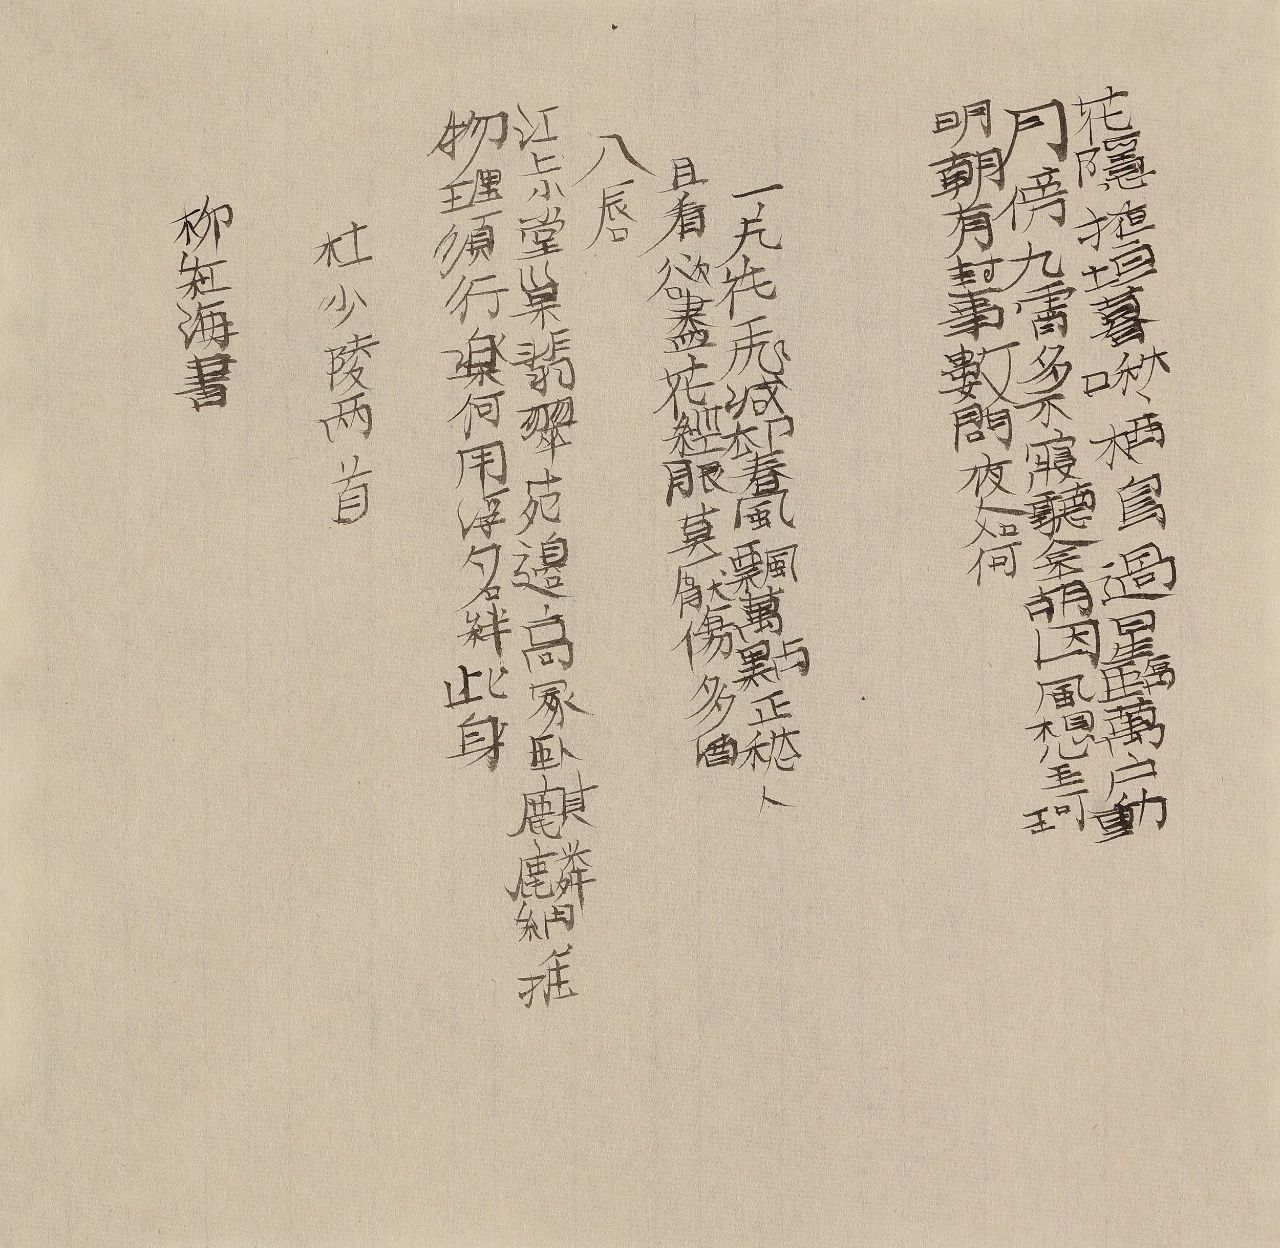 花隱掖垣暮啾啾栖鳥過星臨萬户動
月傍九霄多不寢聽金鑰因風想玉珂
明朝有封事數問夜如何
一片花飛減却春風飄萬點正愁人
且看欲盡花經眼莫厭傷多酒
入唇
江上小堂巢翡翠苑邊高冢卧麒麟細推
物理須行樂何用浮名絆此身
杜少陵两首
柳紅海書